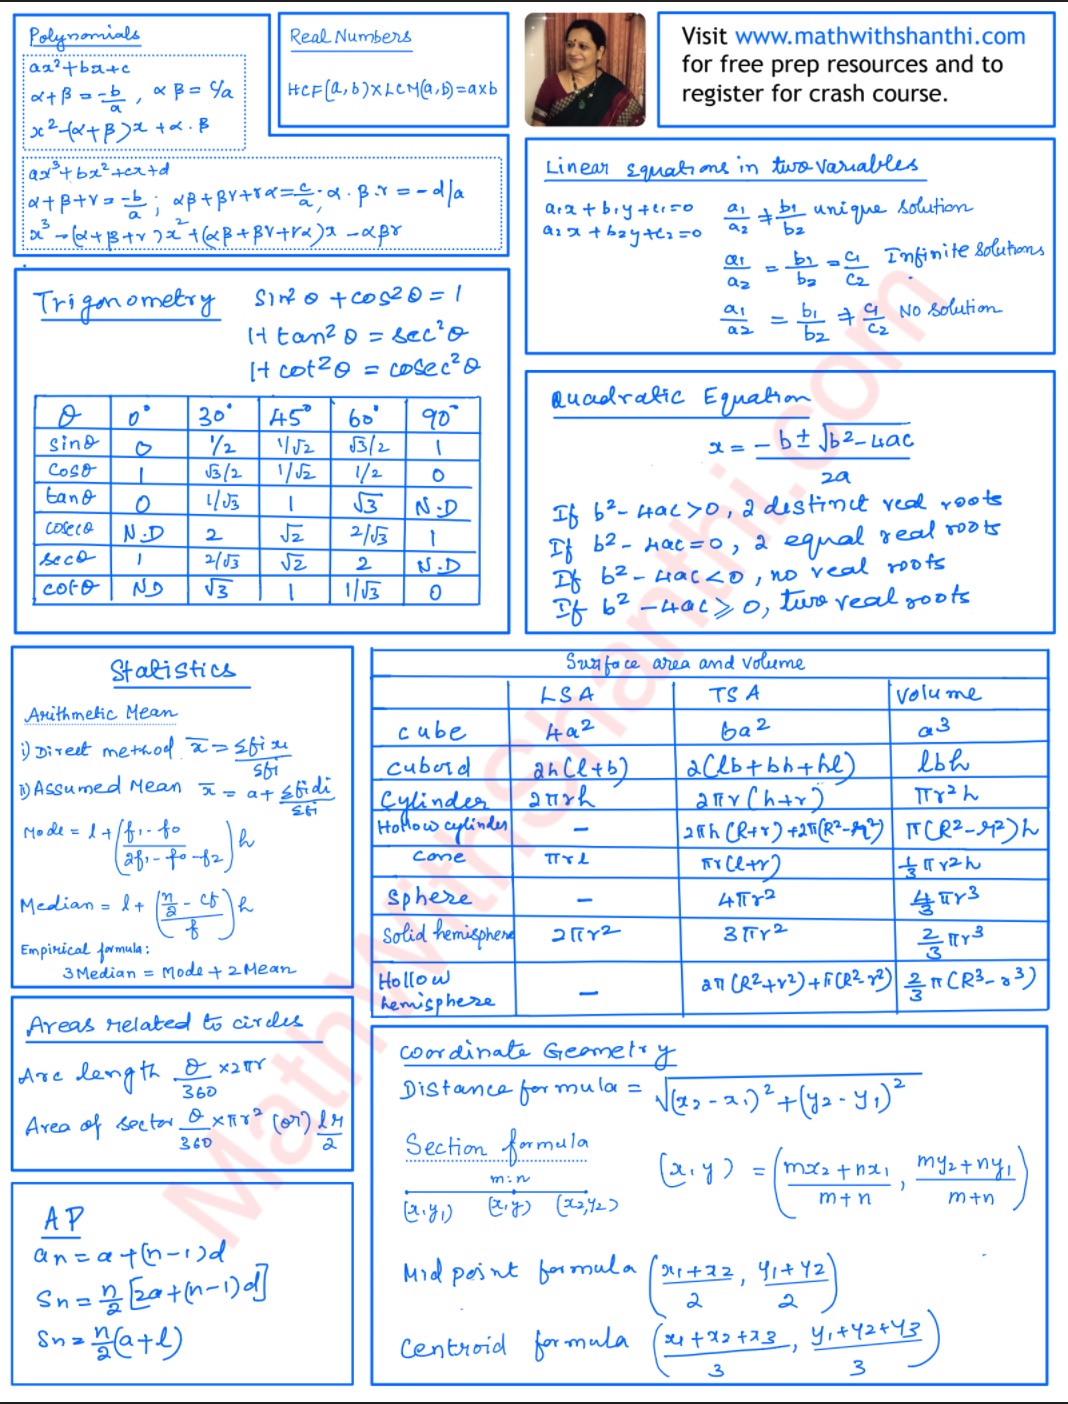 Polynomials
ax²+bx+c
α+β = -b/a , αβ = c/a
x²-(α+β)x + α.β
ax³+bx²+cx+d
α+β+γ = -b/a ; αβ+βγ+γα = c/a , α.β.γ = -d/a
x³-(α+β+γ)x²+(αβ+βγ+γα)x - αβγ
Real Numbers
HCF(a,b)×LCM(a,b)=a×b
Visit www.mathwithshanthi.com
for free prep resources and to
register for crash course.
Linear Equations in two variables
a₁x+b₁y+c₁=0
a₂x+b₂y+c₂=0
a₁/a₂ ≠ b₁/b₂ unique solution
a₁/a₂ = b₁/b₂ = c₁/c₂ Infinite solutions
a₁/a₂ = b₁/b₂ ≠ c₁/c₂ No solution
Trigonometry
sin²θ+cos²θ=1
1+tan²θ=sec²θ
1+cot²θ=cosec²θ
θ 0° 30° 45° 60° 90°
sinθ 0 1/2 1/√2 √3/2 1
cosθ 1 √3/2 1/√2 1/2 0
tanθ 0 1/√3 1 √3 N.D
cosecθ N.D 2 √2 2/√3 1
secθ 1 2/√3 √2 2 N.D
cotθ ND √3 1 1/√3 0
Quadratic Equation
x = -b±√b²-4ac / 2a
If b²-4ac>0, 2 distinct real roots
If b²-4ac=0, 2 equal real roots
If b²-4ac<0, no real roots
If b²-4ac≥0, two real roots
Statistics
Arithmetic Mean
i) Direct method x̄ = Σfixi/Σfi
ii) Assumed Mean x̄ = a+Σfidi/Σfi
Mode = l+(f₁-f₀/2f₁-f₀-f₂)h
Median = l+(n/2-cf/f)h
Empirical formula:
3Median = Mode+2Mean
Surface area and volume
LSA TSA Volume
cube 4a² 6a² a³
cuboid 2h(l+b) 2(lb+bh+hl) lbh
Cylinder 2πrh 2πr(h+r) πr²h
Hollow cylinder – 2πh(R+r)+2π(R²-r²) π(R²-r²)h
cone πrl πr(l+r) 1/3πr²h
Sphere – 4πr² 4/3πr³
Solid hemisphere 2πr² 3πr² 2/3πr³
Hollow hemisphere – 2π(R²+r²)+π(R²-r²) 2/3π(R³-r³)
Areas related to circles
Arc length θ/360 ×2πr
Area of sector θ/360 ×πr² (or) lr/2
AP
an = a+(n-1)d
Sn = n/2[2a+(n-1)d]
Sn = n/2(a+l)
Coordinate Geometry
Distance formula = √(x₂-x₁)²+(y₂-y₁)²
Section formula
m:n
(x,y₁) (x,y) (x₂,y₂)
(x,y) = (mx₂+nx₁/m+n , my₂+ny₁/m+n)
Mid point formula (x₁+x₂/2 , y₁+y₂/2)
Centroid formula (x₁+x₂+x₃/3 , y₁+y₂+y₃/3)
MathWithShanthi.com